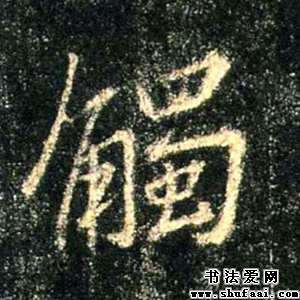 觸
书法爱网
www.shufaai.com